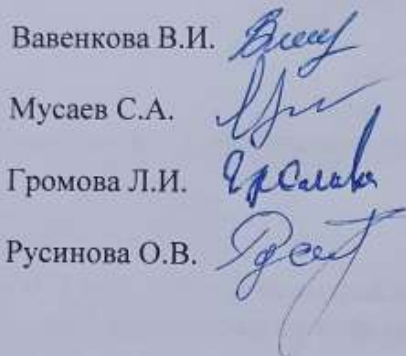 Вавенкова В.И.
Мусаев С.А.
Громова Л.И.
Русинова О.В.